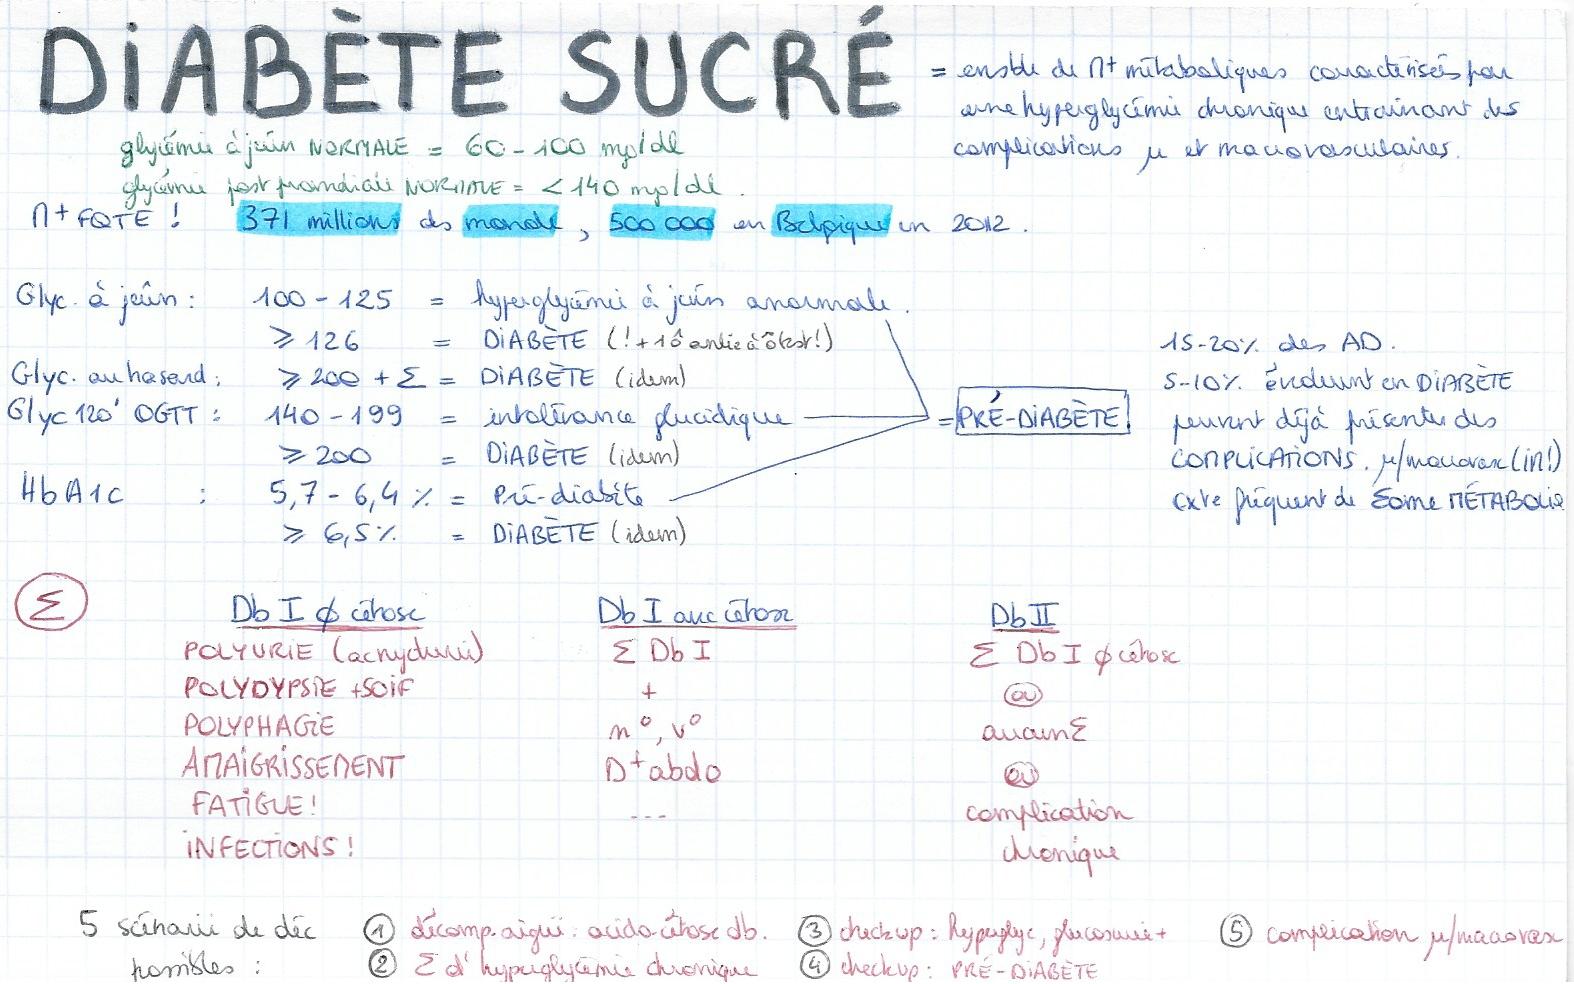 DiABÈTE SUCRÉ
= ensble de π+ métaboliques caractérisés par
une hyperglycémie chronique entrainant des
complications μ et macrovasculaires.
glycémie à jeûn NORMALE = 60-100 mg/dl
glycémie post prandiale NORMALE = <140 mg/dl.
π+ FQTE ! 371 millions ds monde, 500 000 en Belgique en 2012.
Glyc. à jeûn : 100-125 = hyperglycémie à jeûn anormale.
≥ 126 = DiABÈTE
Glyc. au hasard : ≥ 200 + Σ = DiABÈTE (idem)
Glyc 120' OGTT : 140-199 = intolérance glucidique
≥ 200 = DiABÈTE (idem)
HbA1c : 5,7-6,4 % = Pré-diabète
≥ 6,5 % = DiABÈTE (idem)
= PRÉ-DiABÈTE
15-20% des AD.
5-10% évoluent en DiABÈTE
peuvent déjà présenter des
COMPLiCATiONS μ/macrovasc (iπ!)
fréquent de Σome MÉTABOLiQ
Σ
Db I ∅ cétose
POLYURiE
POLYDYPSiE + SOiF
POLYPHAGiE
AMAiGRiSSEMENT
FATiGUE !
iNFECTiONS !
Db I avec cétose
Σ Db I
+
n°, v°
D+ abdo
---
Db II
Σ Db I ∅ cétose
ou
aucun Σ
ou
complication
chronique
5 scénarii de déc
possibles :
① décomp. aiguë : acido-cétose db.
② Σ d'hyperglycémie chronique
③ checkup : hyperglyc, glucosurie +
④ checkup : PRÉ-DiABÈTE
⑤ complication μ/macrovasc